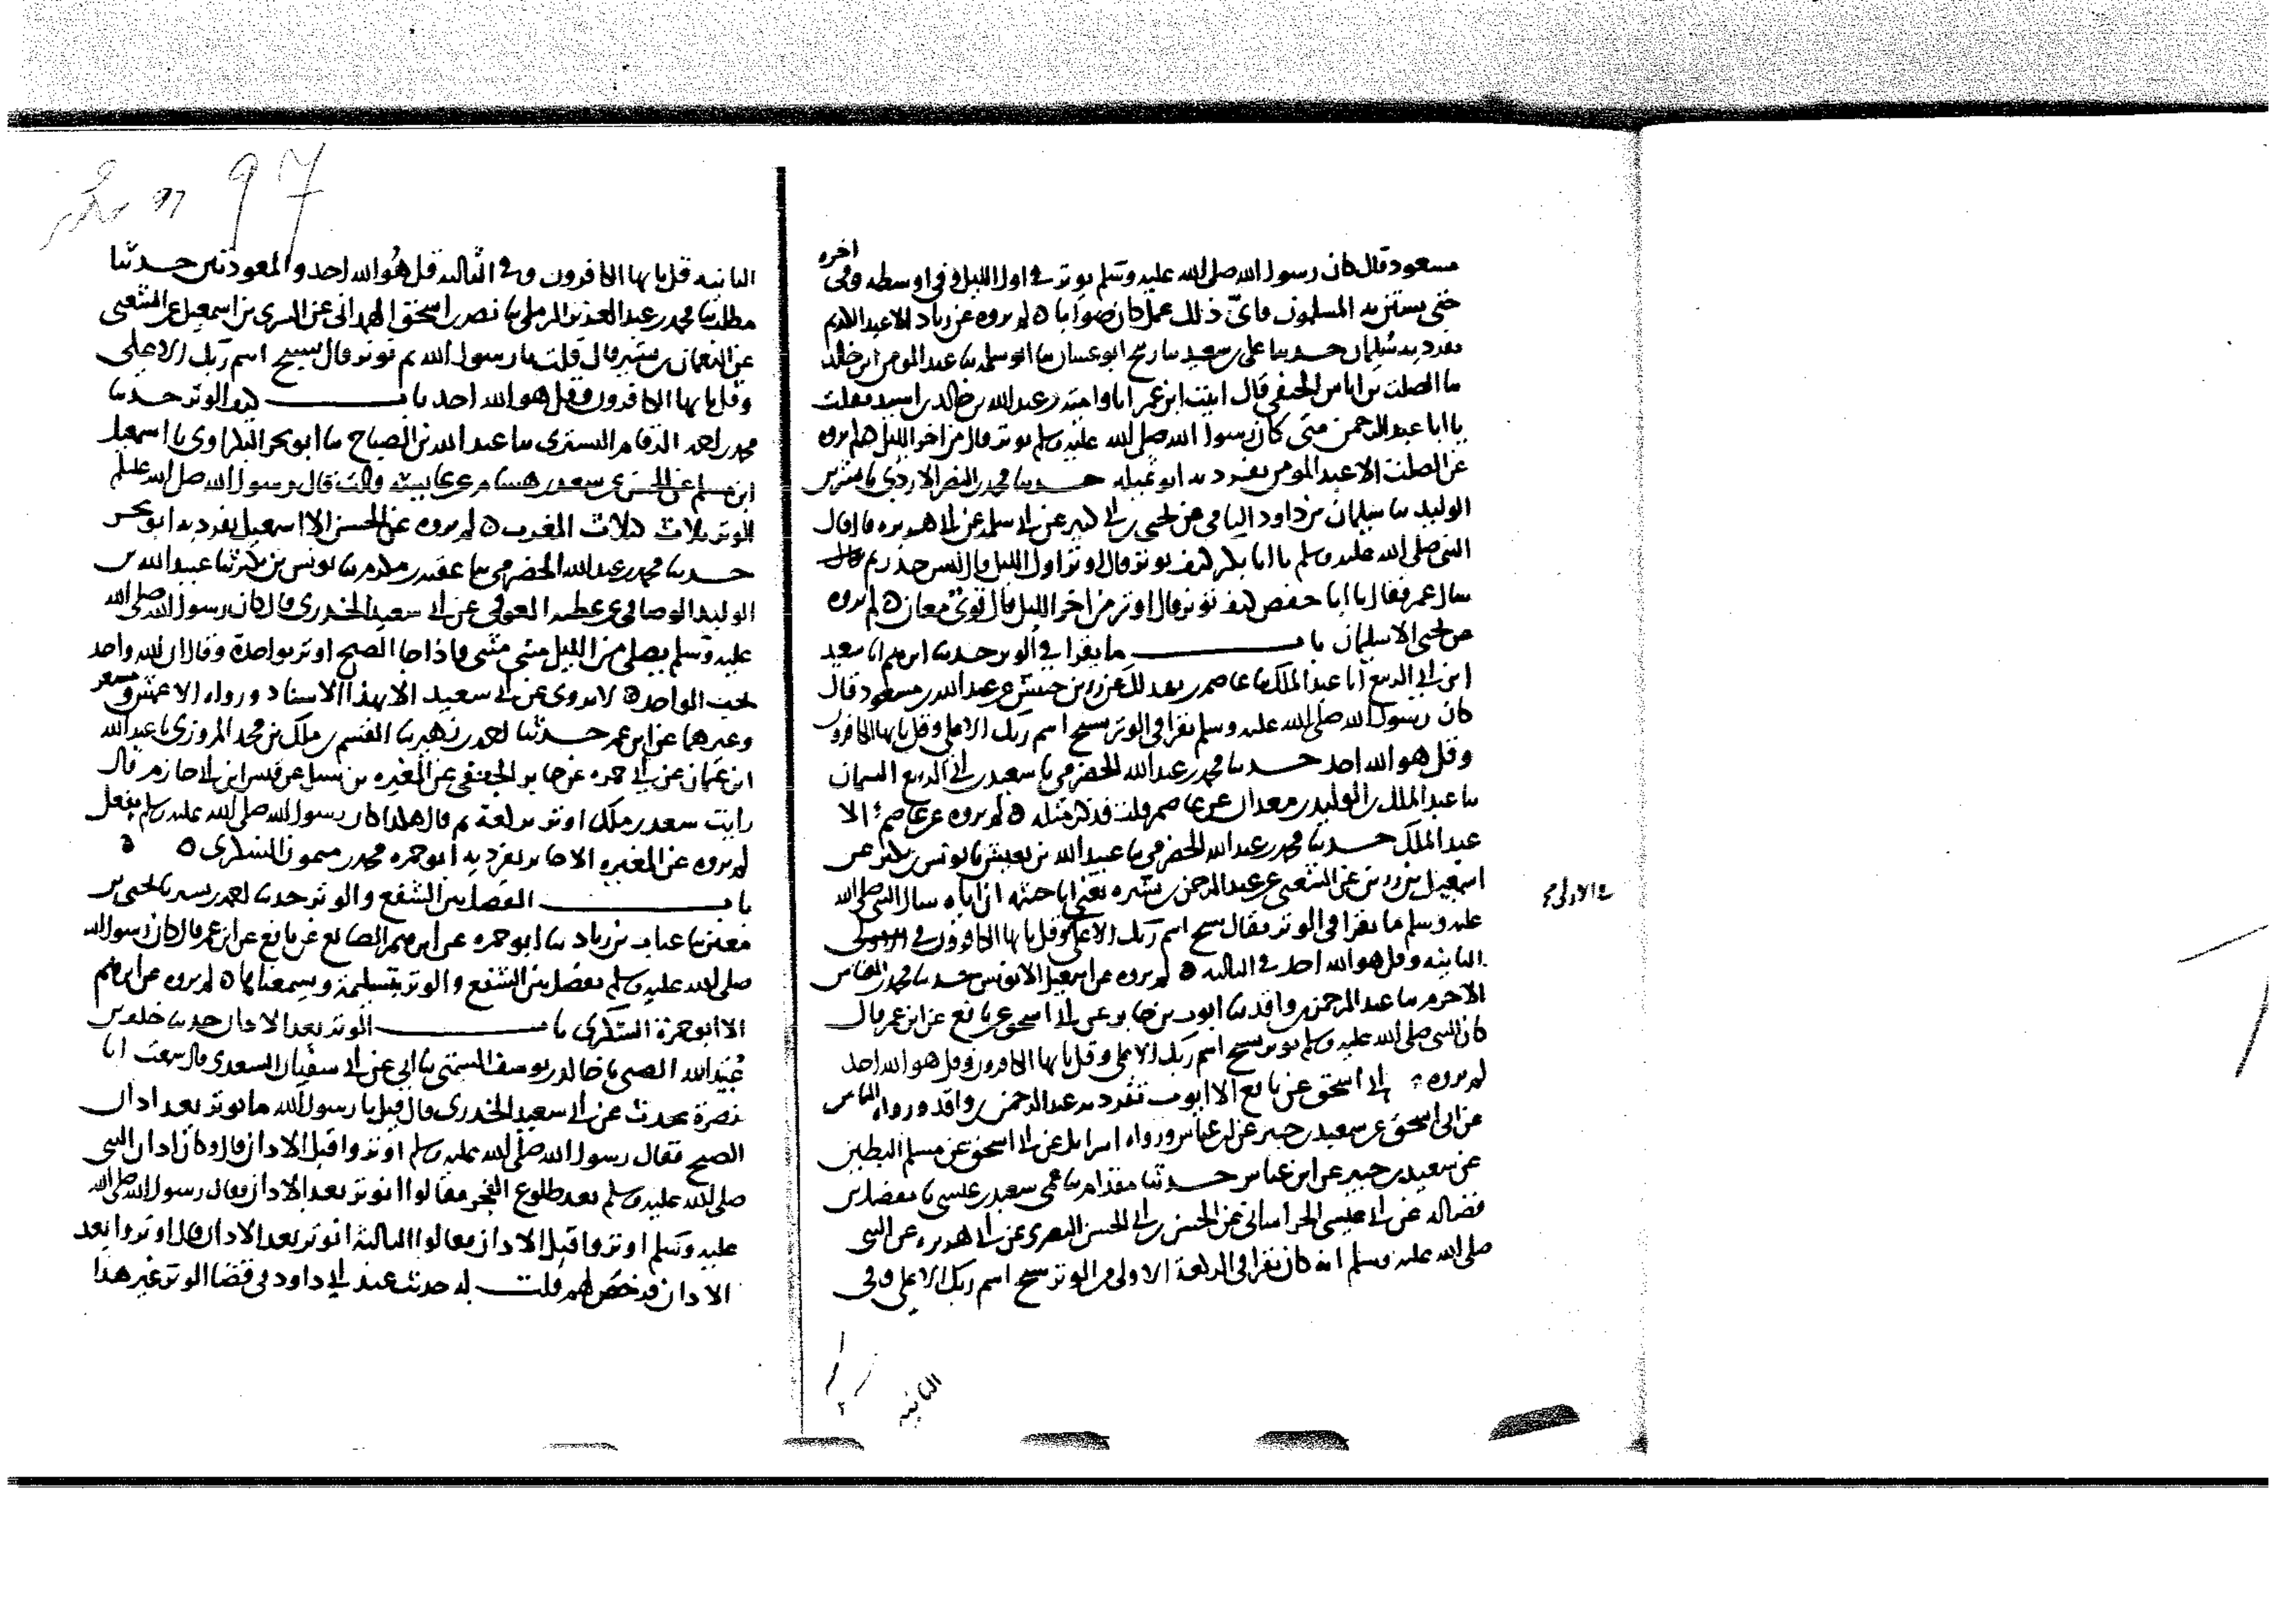 اخره
مسعود قال كان رسول الله صلى الله عليه وسلم يوتر في اول الليل وفي اوسطه وفي
حتى يستن به المسلمون فاي ذلك عمل كان صوابا ه لم يروه عن زياد الا عبد الكريم
تفرد به سليمان حدثنا علي بن سعيد ثنا زنيج ابو غسان ثنا ابو تميلة ثنا عبد المومن ابن خالد
ثنا الصلت بن اياس الحنفي قال اتيت ابن عمر انا وامية بن عبد الله بن خالد بن اسيد فقلت
يا ابا عبد الرحمن متى كان رسول الله صلى الله عليه وسلم يوتر قال من اخر الليل لم يروه
عن الصلت الا عبد المومن تفرد به ابو تميله حدثنا محمد بن النضر الازدي ثنا بشر بن
الوليد ثنا سليمان بن داود اليامي عن يحيى بن ابي كثير عن ابي سلمه عن ابي هريره قال قال
النبي صلى الله عليه وسلم يا ابا بكر كيف توتر قال اوتر اول الليل قال كيس حذر ثم
سال عمر فقال يا ابا حفص كيف توتر قال اوتر من اخر الليل قال قوي معان ه لم يروه
عن يحيى الا سليمان باب ما يقرا في الوتر حدثنا ابرهيم ثنا سعيد
ابن ابي الربيع ثنا عبد الملك ثنا عاصم بن بهدلة عن زر بن حبيش عن عبد الله بن مسعود قال
كان رسول الله صلى الله عليه وسلم يقرا في الوتر سبح اسم ربك الاعلى وقل يا يها الكافرون
وقل هو الله احد حدثنا محمد بن عبد الله الحضرمي ثنا سعيد بن ابي الربيع السمان
ثنا عبد الملك بن الوليد بن معدان عن عاصم قلت فذكر مثله ه لم يروه عن عاصم الا
عبد الملك حدثنا محمد بن عبد الله الحضرمي ثنا عبيد الله بن يعيش ثنا يونس بن بكير عن
اسمعيل بن رزين عن الشعبي عن عبد الرحمن بن سبره يعني ابا خيثمه ان اباه سال النبي صلى الله
عليه وسلم ما يقرا في الوتر فقال سبح اسم ربك الاعلى وقل يا يها الكافرون في
في الاولى
الثانيه وقل هو الله احد في الثالثه ه لم يروه عن اسمعيل الا يونس حدثنا محمد بن العباس
الاخرم ثنا عبد الرحمن بن واقد ثنا ايوب بن جابر عن ابي اسحق عن نافع عن ابن عمر قال
كان النبي صلى الله عليه وسلم يوتر بسبح اسم ربك الاعلى وقل يا يها الكافرون وقل هو الله احد
لم يروه ابي اسحق عن نافع الا ايوب تفرد به عبد الرحمن بن واقد ورواه الناس
عن ابي اسحق عن سعيد بن جبير عن ابن عباس ورواه اسرايل عن ابي اسحق عن مسلم البطين
عن سعيد بن جبير عن ابن عباس حدثنا مقدام ثنا عمي سعيد بن عيسى ثنا مفضل بن
فضاله عن ابي عيسى الخراساني عن الحسن بن ابي الحسن البصري عن ابي هريره عن النبي
صلى الله عليه وسلم انه كان يقرا في الركعة الاولى من الوتر سبح اسم ربك الاعلى وفي
الثانيه
97
الثانيه قل يا يها الكافرون وفي الثالثه قل هو الله احد والمعوذتين حدثنا
مطلب ثنا محمد بن عبد العزيز الرملي ثنا نصر بن اسحق الهمداني عن السري بن اسمعيل عن الشعبي
عن النعمان بن بشير قال قلت يا رسول الله بم توتر قال بسبح اسم ربك الاعلى
وقل يا يها الكافرون وقل هو الله احد باب كيف الوتر حدثنا
محمد بن احمد الرقام التستري ثنا عبد الله بن الصباح ثنا ابو بحر البكراوي ثنا اسمعيل
ابن مسلم عن الحسن عن سعد بن هشام عن عايشة قالت قال رسول الله صلى الله عليه وسلم
الوتر ثلاث كثلاث المغرب ه لم يروه عن الحسن الا اسمعيل تفرد به ابو بحر
حدثنا محمد بن عبد الله الحضرمي ثنا عقبة بن مكرم ثنا يونس بن بكير ثنا عبيد الله بن
الوليد الوصافي عن عطيه العوفي عن ابي سعيد الخدري قال كان رسول الله صلى الله
عليه وسلم يصلي من الليل مثنى مثنى فاذا جا الصبح اوتر بواحدة وقال ان الله واحد
يحب الواحد ه لا يروى عن ابي سعيد الا بهذا الاسناد ورواه الاعمش ومسعر
وغيرهما عن ابن عمر حدثنا احمد بن زهير ثنا القسم بن ملك بن محمد المروزي ثنا عبد الله
ابن عثمان عن ابي حمزه عن جابر الجعفي عن المغيره بن شبيل عن قيس ابن ابي حازم قال
رايت سعد بن ملك اوتر بركعة ثم قال هكذا كان رسول الله صلى الله عليه وسلم يفعل
لم يروه عن المغيره الا جابر تفرد به ابو حمزه محمد بن ميمون السكري ه ه
باب الفصل بين الشفع والوتر حدثنا احمد بن بشر ثنا يحيى بن
معين ثنا عتاب بن زياد ثنا ابو حمزه عن ابرهيم الصايغ عن نافع عن ابن عمر قال كان رسول الله
صلى الله عليه وسلم يفصل بين الشفع والوتر بتسليمة ويسمعناها ه لم يروه عن ابرهيم
الا ابو حمزة السكري باب الوتر بعد الاذان حدثنا خلف بن
عبيد الله الضبي ثنا خالد بن يوسف السمتي ثنا ابي عن ابي سفيان السعدي قال سمعت ابا
نضرة يحدث عن ابي سعيد الخدري قال قيل يا رسول الله ما يوتر بعد اذان
الصبح فقال رسول الله صلى الله عليه وسلم اوتروا قبل الاذان قال وكان اذان النبي
صلى الله عليه وسلم بعد طلوع الفجر فقالوا انوتر بعد الاذان فقال رسول الله صلى الله
عليه وسلم اوتروا قبل الاذان فقالوا الثالثة انوتر بعد الاذان قال اوتروا بعد
الاذان فرخص لهم قلت له حديث عند ابي داود في قضا الوتر غير هذا